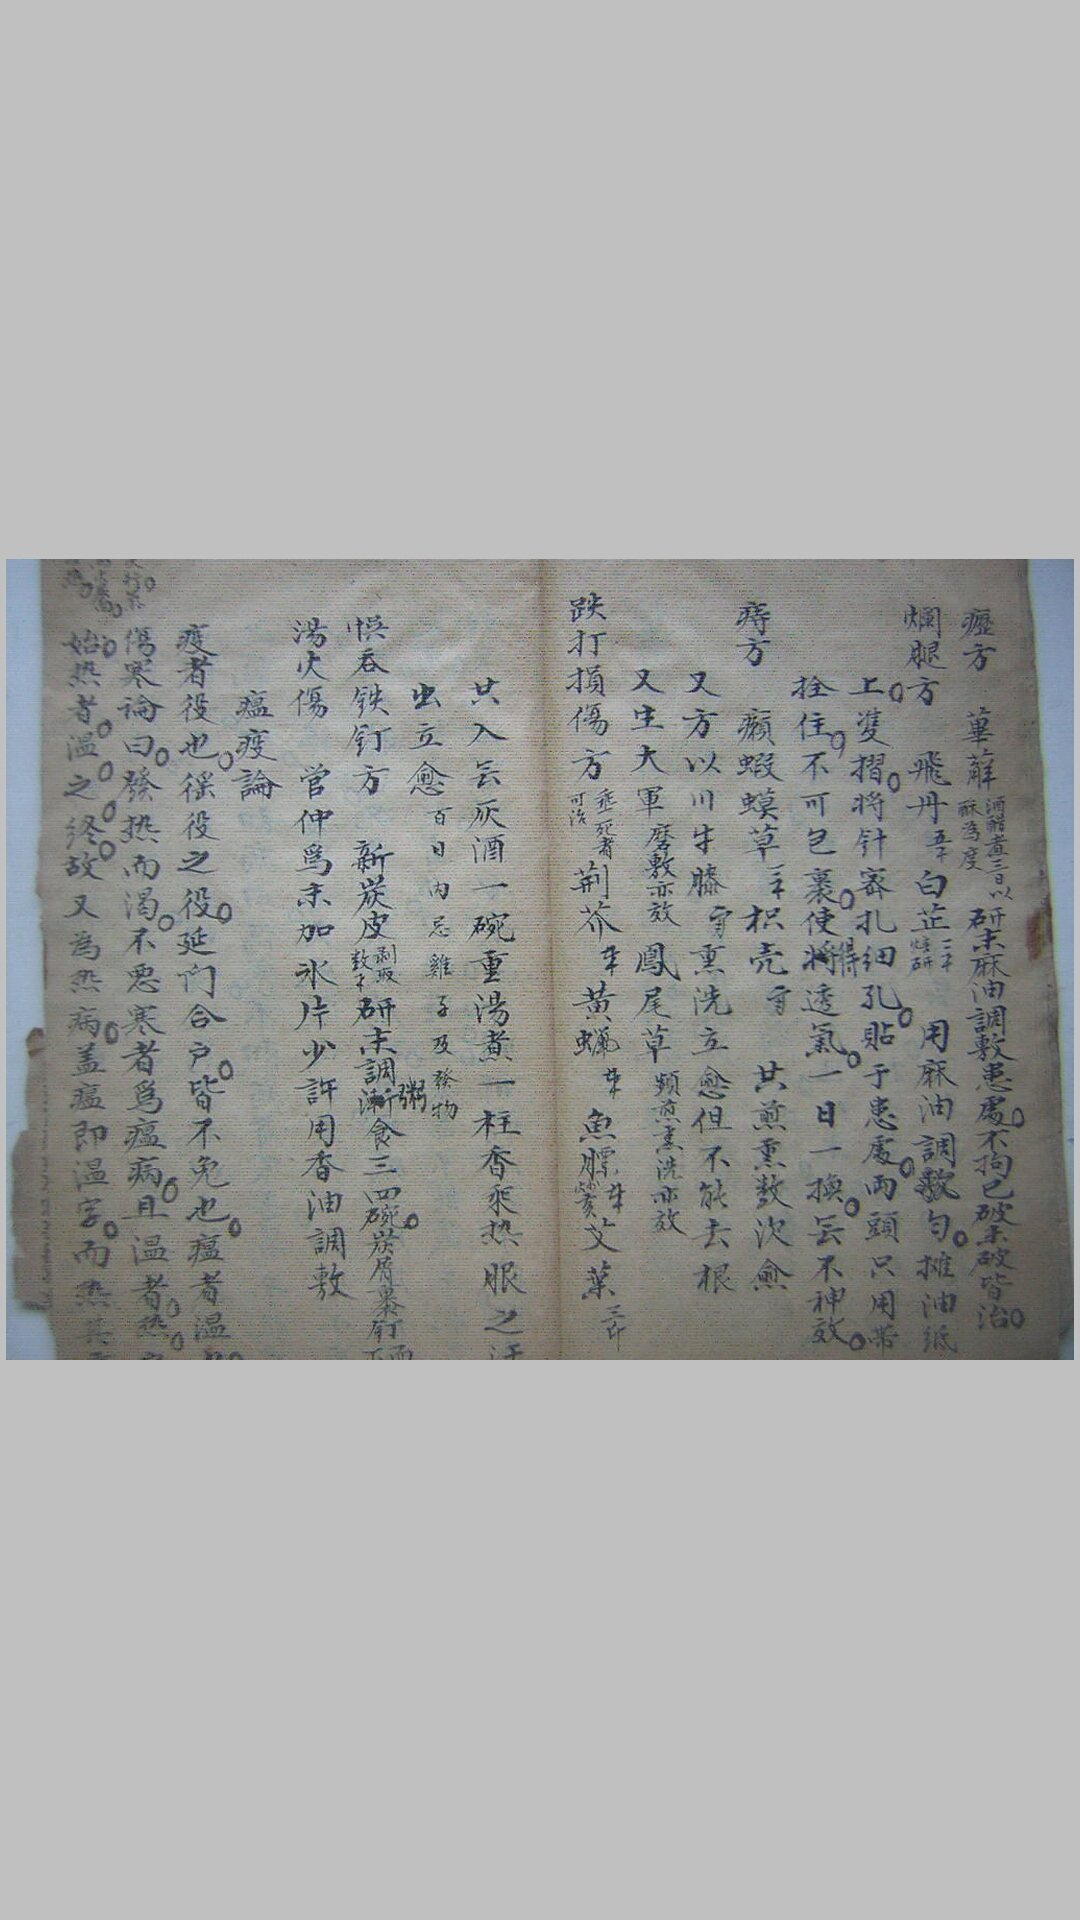 瘂方　萆薢酒醋煮三日以酥為度研末麻油調敷患處不拘已破未破皆治
爛腿方　飛丹白芷用麻油調敷勻攤油紙
上雙摺將針密扎細孔貼于患處兩頭只用帶
拴住不可包裹使得透氣一日一換無不神效
痔方　癩蝦蟆草枳壳共煎熏數次愈
又方以川牛膝熏洗立愈但不能去根
又生大軍磨敷亦效　鳳尾草頻煎熏洗亦效
跌打損傷方垂死者可治荊芥黃蠟魚膘艾葉
共入無灰酒一碗重湯煮一柱香乘热服之汗
出立愈百日內忌雞子及發物
悮吞铁釘方　新炭皮研末調粥漸食三四碗炭屑裹釘而下
湯火傷　管仲為末加氷片少許用香油調敷
瘟疫論
疫者役也徭役之役延門合户皆不免也瘟者温
傷寒論曰發热而渴不惡寒者為瘟病且温者热
始热者温之終故又為热病盖瘟即温字而热